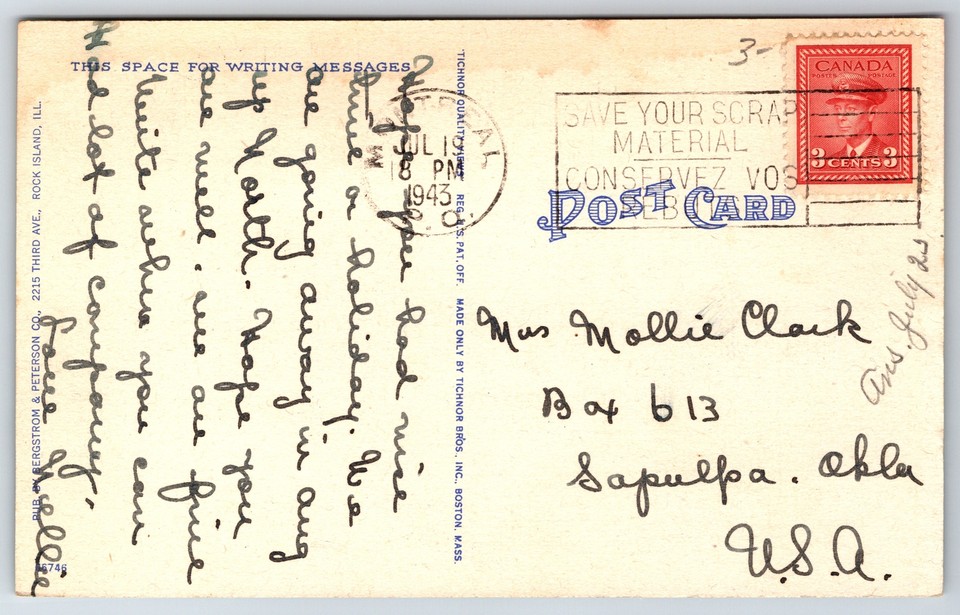 THIS SPACE FOR WRITING MESSAGES
Hope you had nice
time on holiday. We
are going away in aug
up North. Hope you
are well. we are fine
Write when you can
Had lot of company.
Love Nellie
PUB. BY BERGSTROM & PETERSON CO., 2215 THIRD AVE., ROCK ISLAND, ILL.
TICHNOR QUALITY VIEWS REG. U.S. PAT. OFF. MADE ONLY BY TICHNOR BROS., INC., BOSTON, MASS.
MONTREAL
JUL 19
PM
1943
P.Q.
SAVE YOUR SCRAP
MATERIAL
CONSERVEZ VOS
3-
CANADA
POSTES POSTAGE
3 CENTS 3
POST CARD
Mrs Mollie Clark
Box 613
Sapulpa. Okla
U.S.A.
Ans. July 22